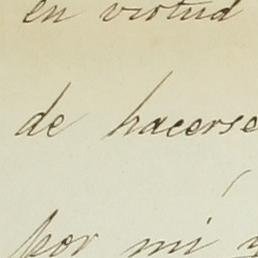 en virtud
de hacerse
por mi y